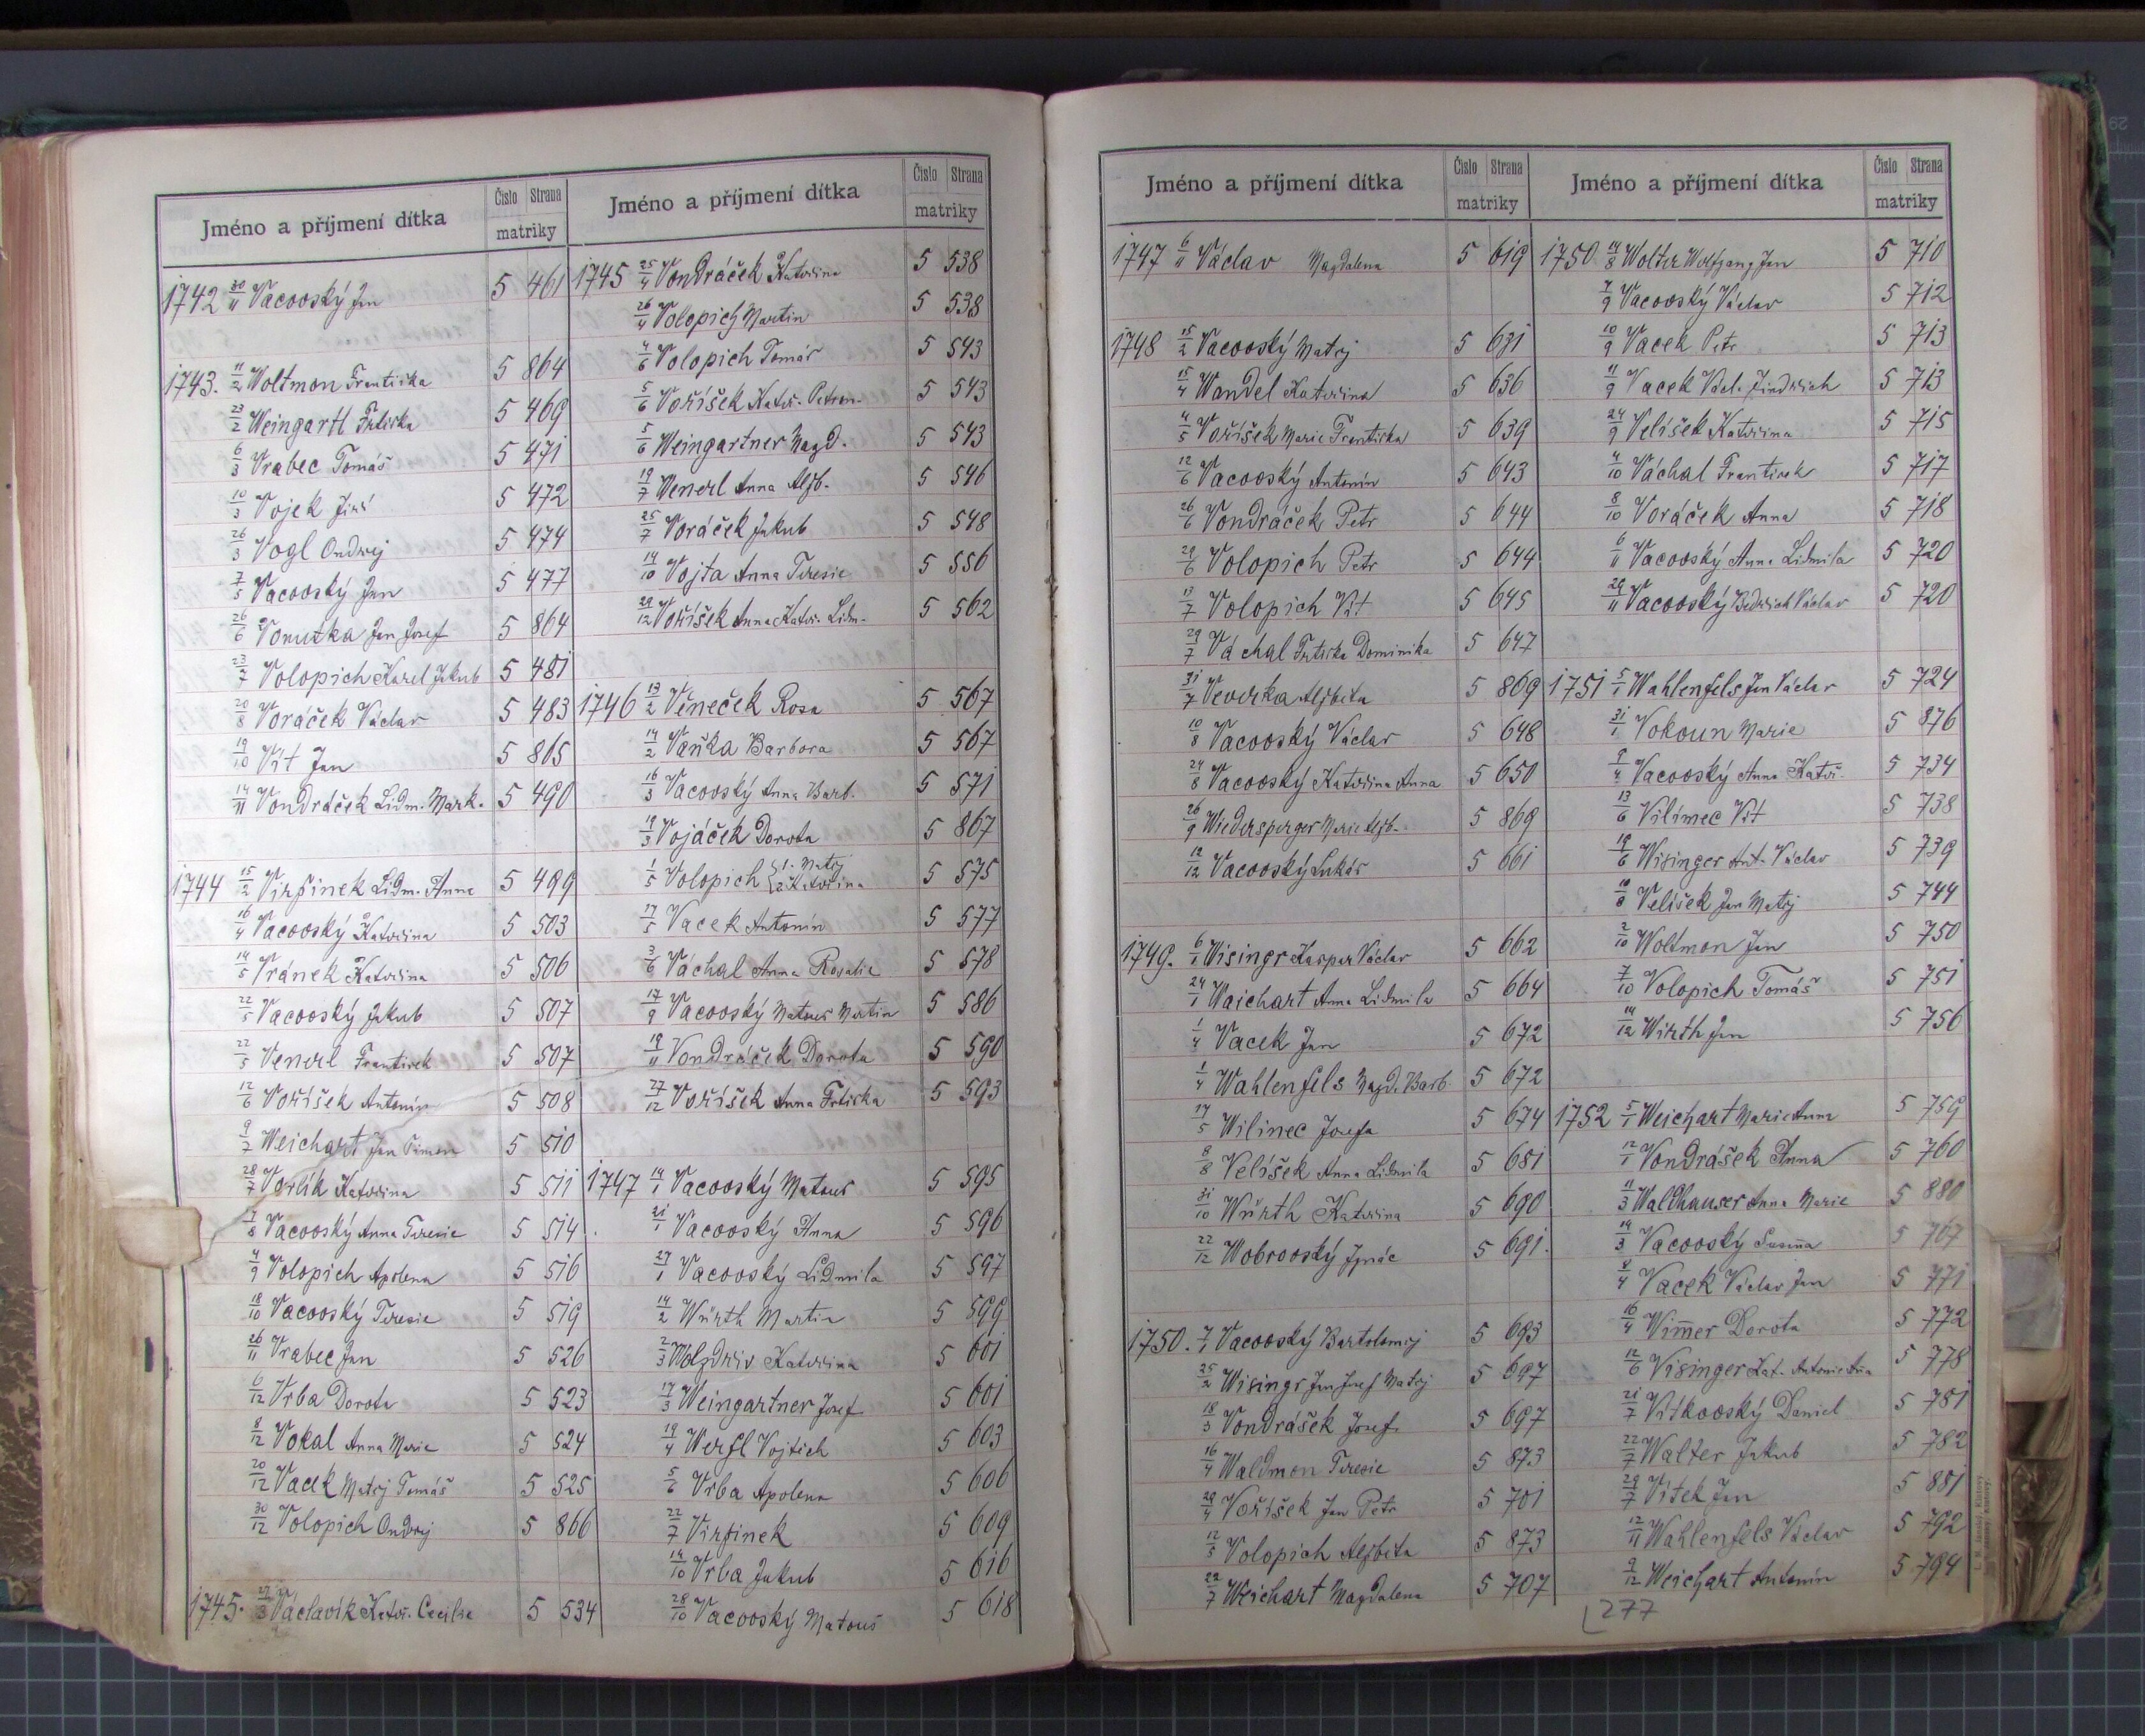 Jméno a příjmení dítka Číslo Strana matriky
1742 30/11 Vacovský Jan 5 461
1743. 11/2 Woltmon Františka 5 864
23/2 Weingartl Frtiška 5 469
6/3 Vrabec Tomáš 5 471
10/3 Vojek Jiří 5 472
26/3 Vogl Ondřej 5 474
7/5 Vacovský Jan 5 477
26/6 Jan Josef 5 864
23/7 Volopich Karel Jakub 5 481
20/8 Voráček Václav 5 483
19/10 Vít Jan 5 865
14/11 Vondráček Lidm. Mark. 5 490
1744 15/2 Virsinek Lidm. Anna 5 499
16/4 Vacovský Kateřina 5 503
14/5 Vránek Kateřina 5 506
22/5 Vacovský Jakub 5 507
22/5 Venerl František 5 507
12/6 Voříšek Antonín 5 508
9/7 Weichart Jan 5 510
28/7 Vorlík Kateřina 5 511
7/8 Vacovský Anna Teresie 5 514
4/9 Volopich Apolena 5 516
18/10 Vacovský Teresie 5 519
26/11 Vrabec Jan 5 526
6/12 Vrba Dorota 5 523
8/12 Vokal Anna Marie 5 524
20/12 Vacek Matěj Tomáš 5 525
30/12 Volopich Ondřej 5 866
1745. Václavík Kateř. Cecilie 5 534
Jméno a příjmení dítka Číslo Strana matriky
1745 25/4 Vondráček Kateřina 5 538
26/4 Volopich Martin 5 538
4/6 Volopich Tomáš 5 543
5/6 Voříšek Kateř. Petron. 5 543
5/6 Weingartner Magd. 5 543
19/7 Wenerl Anna Aljb. 5 546
25/7 Voráček Jakub 5 548
14/10 Vojta Anna Teresie 5 556
29/12 Voříšek Anna Kateř. Lidm. 5 562
1746 13/2 Věneček Rosa 5 567
14/2 Vaňka Barbora 5 567
16/3 Vacovský Anna Barb. 5 571
19/3 Vojáček Dorota 5 867
1/5 Volopich {1. Matěj 2. Kateřina 5 575
17/5 Vacek Antonín 5 577
3/6 Váchal Anna Rosalie 5 578
17/9 Vacovský Matouš Martin 5 586
19/11 Vondráček Dorota 5 590
27/12 Voříšek Anna Frtiška 5 593
1747 14/1 Vacovský Matouš 5 595
21/1 Vacovský Anna 5 596
27/1 Vacovský Lidmila 5 597
14/2 Würth Martin 5 599
2/3 Kateřina 5 601
17/3 Weingartner Josef 5 601
19/4 Werfl Vojtěch 5 603
5/6 Vrba Apolena 5 606
22/7 Virsinek 5 609
14/10 Vrba Jakub 5 616
28/10 Vacovský Matouš 5 618
Jméno a příjmení dítka Číslo Strana matriky
1747 6/11 Václav Magdalena 5 619
1748 15/2 Vacovský Matěj 5 631
15/4 Wandel Kateřina 5 636
4/5 Voříšek Marie Františka 5 639
12/6 Vacovský Antonín 5 643
26/6 Vondráček Petr 5 644
29/6 Volopich Petr 5 644
13/7 Volopich Vít 5 645
29/7 Váchal Frtiška Dominika 5 647
31/7 Veverka Aljbeta 5 869
10/8 Vacovský Václav 5 648
24/8 Vacovský Kateřina Anna 5 650
26/9 Wiedersperger Marie Aljb. 5 869
12/12 Vacovský Lukáš 5 661
1749. 6/1 Wisingr Kaspar Václav 5 662
24/1 Waichart Anna Lidmila 5 664
1/4 Vacek Jan 5 672
1/4 Wahlenfels Magd. Barb. 5 672
17/5 Wilinec Josefa 5 674
8/8 Velíšek Anna Lidmila 5 681
31/10 Würth Kateřina 5 690
22/12 Wobrovský Ignác 5 691.
1750. 7/1 Vacovský Bartoloměj 5 693
25/2 Wisingr Jan Josef Matěj 5 697
18/3 Vondrášek Josef 5 697
16/4 Waldmon Teresie 5 873
29/4 Voříšek Jan Petr 5 701
12/5 Volopich Aljbeta 5 873
22/7 Weichart Magdalena 5 707
Jméno a příjmení dítka Číslo Strana matriky
1750. 14/8 Wolter Wolfgang Jan 5 710
7/9 Vacovský Václav 5 712
10/9 Vacek Petr 5 713
11/9 Vacek Václ. Jindřich 5 713
24/9 Velíšek Kateřina 5 715
4/10 Váchal František 5 717
8/10 Voráček Anna 5 718
6/11 Vacovský Anna Lidmila 5 720
29/11 Vacovský Bedřich Václav 5 720
1751 5/1 Wahlenfels Jan Václav 5 724
31/1 Vokoun Marie 5 876
9/4 Vacovský Anna Kateř. 5 734
13/6 Vilímec Vít 5 738
19/6 Wisinger Ant. Václav 5 739
10/8 Velíšek Jan Matěj 5 744
2/10 Woltmon Jan 5 750
7/10 Volopich Tomáš 5 751
14/12 Wirth Jan 5 756
1752 5/1 Weichart Marie Anna 5 759
12/1 Vondrášek Anna 5 760
11/3 Waldhauser Anna Marie 5 880
14/3 Vacovský Susanna 5 767
8/4 Vacek Václav Jan 5 771
16/4 Wimmer Dorota 5 772
12/6 Visinger Kat. Antonie 5 778
21/7 Vítkovský Daniel 5 781
22/7 Walter Jakub 5 782
29/7 Vítek Jan 5 881
12/11 Wahlenfels Václav 5 792
9/12 Weichart Antonín 5 794
277